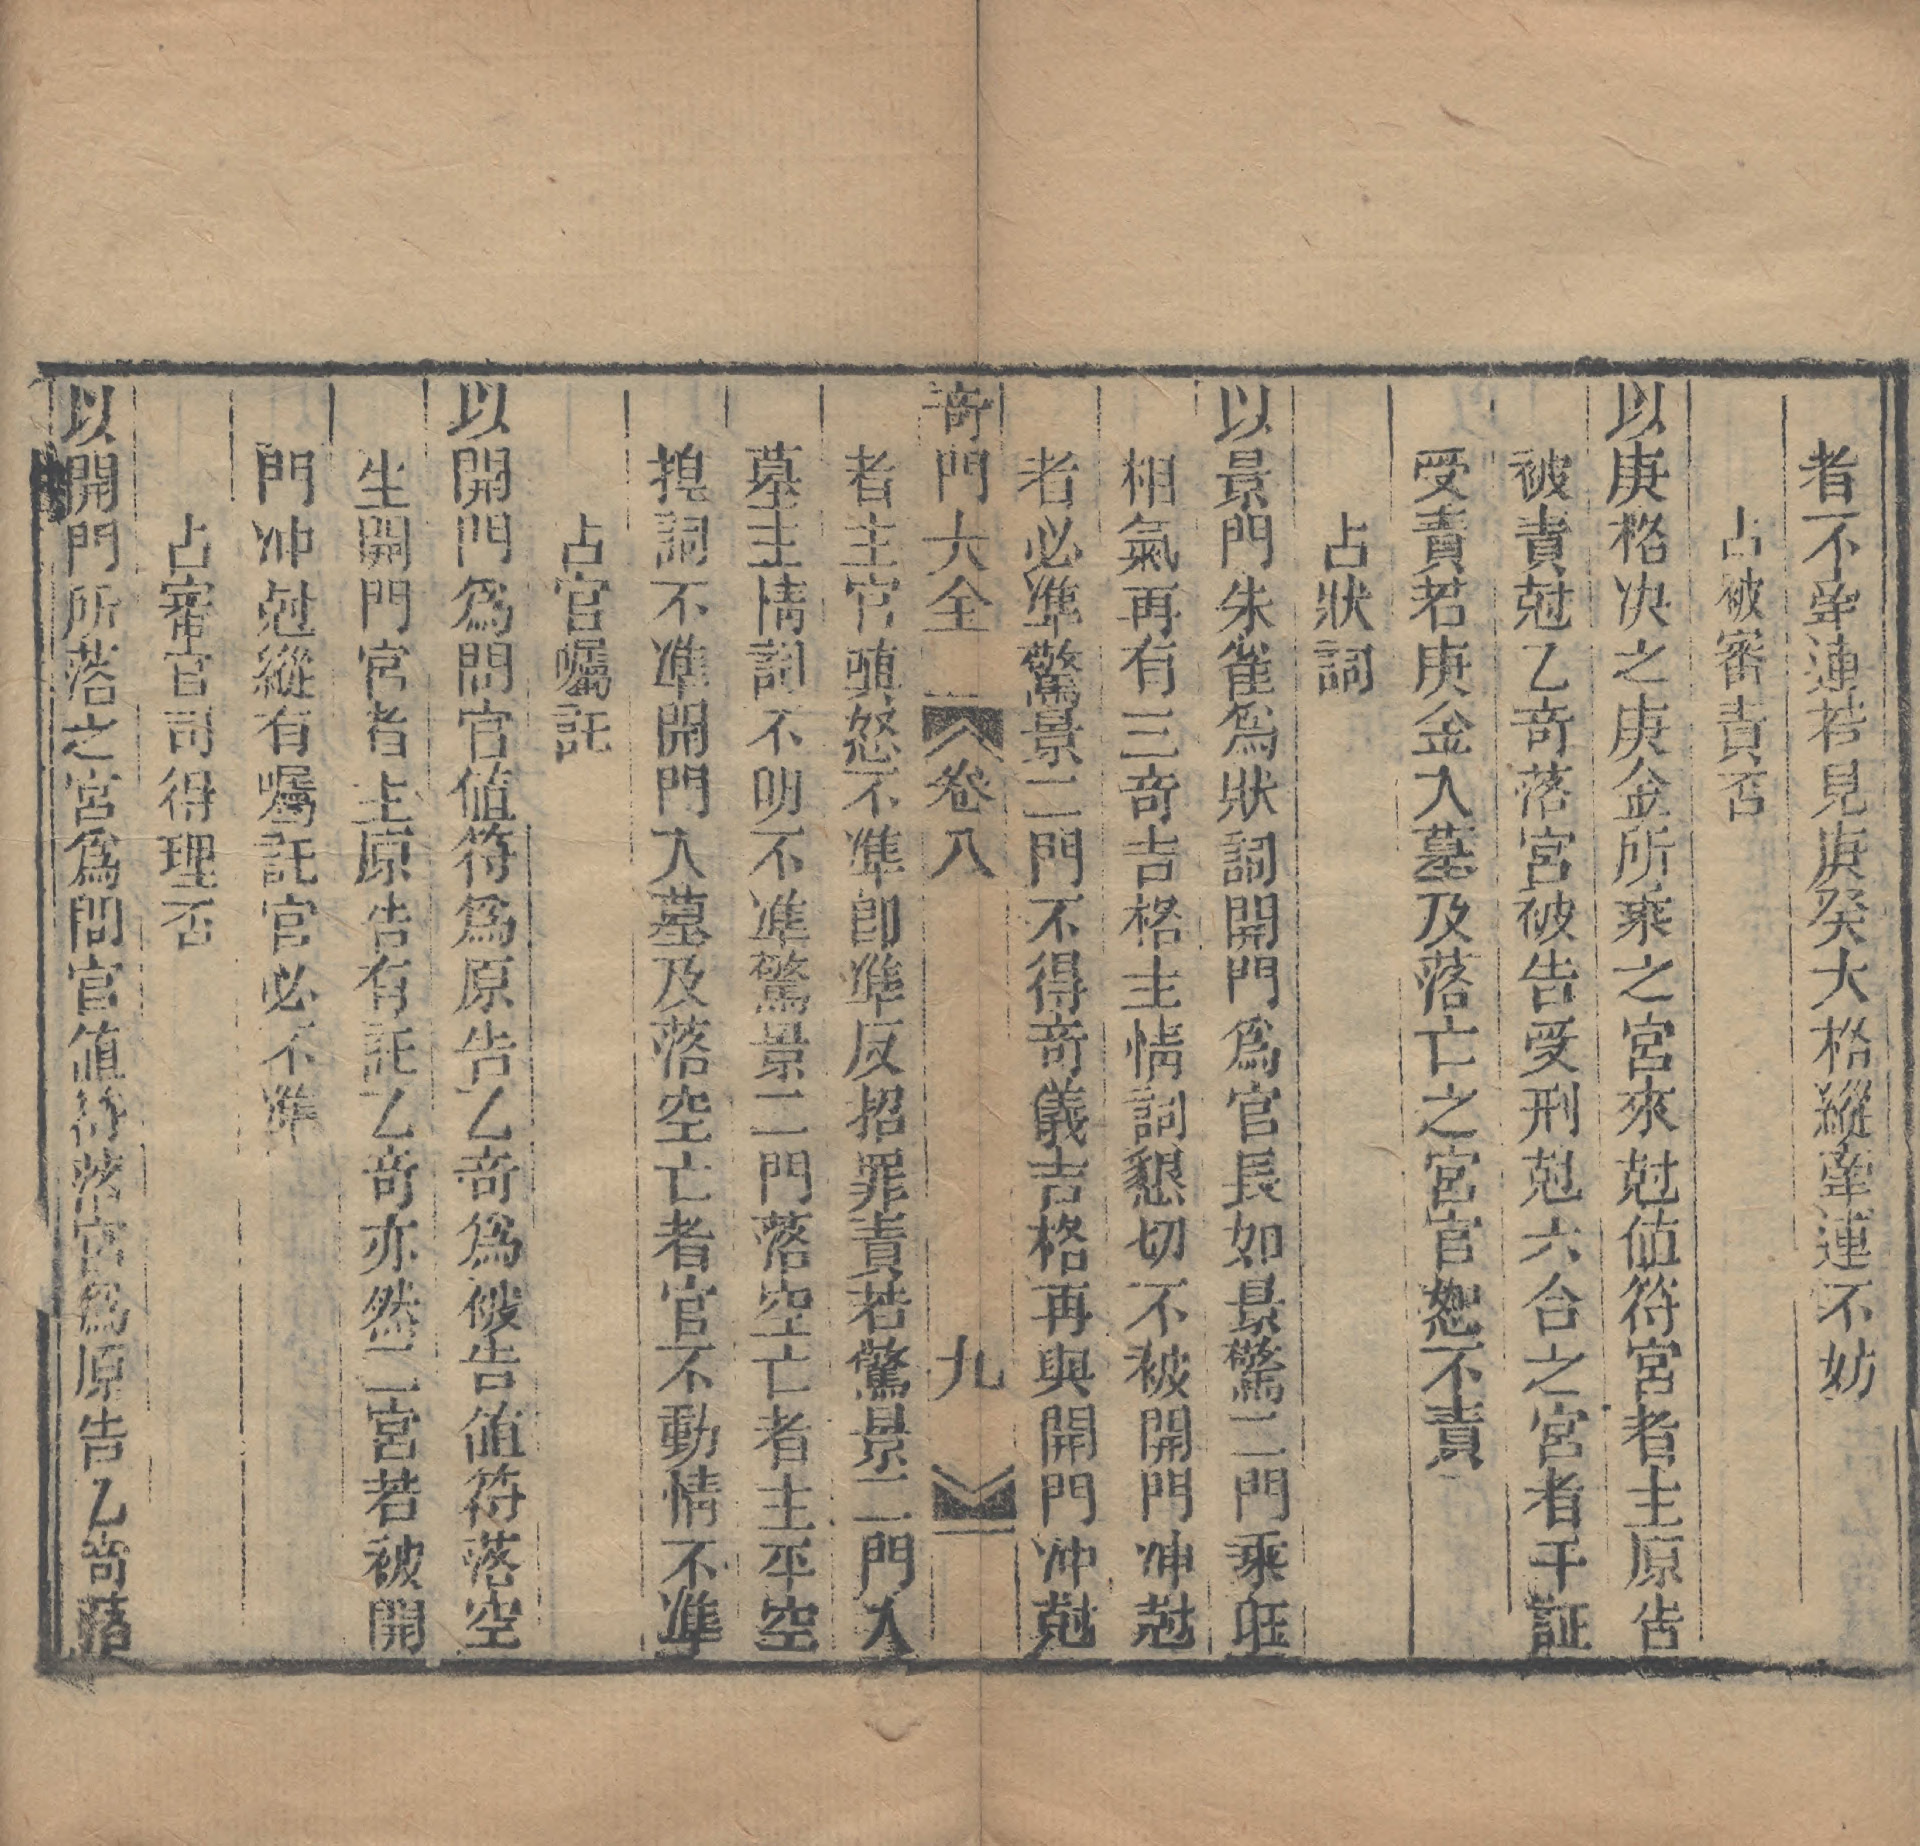 者不牽連若見庚癸大格縱牽連不妨
占被審責否
以庚格决之庚金所乘之宮來尅值符宮者主原告
被責尅乙奇落宮被告受刑尅六合之宮者干証
受責若庚金入墓及落亡之宮官恕不責
占狀詞
以景門朱雀爲狀詞開門爲官長如景驚二門乘旺
相氣再有三奇吉格主情詞懇切不被開門冲尅
者必准驚景二門不得奇儀吉格再與開門冲尅
奇門大全 卷八 九
者主官嗔怒不准卽准反招罪責若驚景二門入
墓主情詞不明不准驚景二門落空亡者主平空
揑詞不准開門入墓及落空亡者官不動情不準
占官囑託
以開門爲問官值符爲原告乙奇爲被告值符落空
生開門宮者主原告有託乙奇亦然二宮若被開
門冲尅縱有囑託官必不准
占審官司得理否
以開門所落之宮爲問官値符落宮爲原告乙奇落